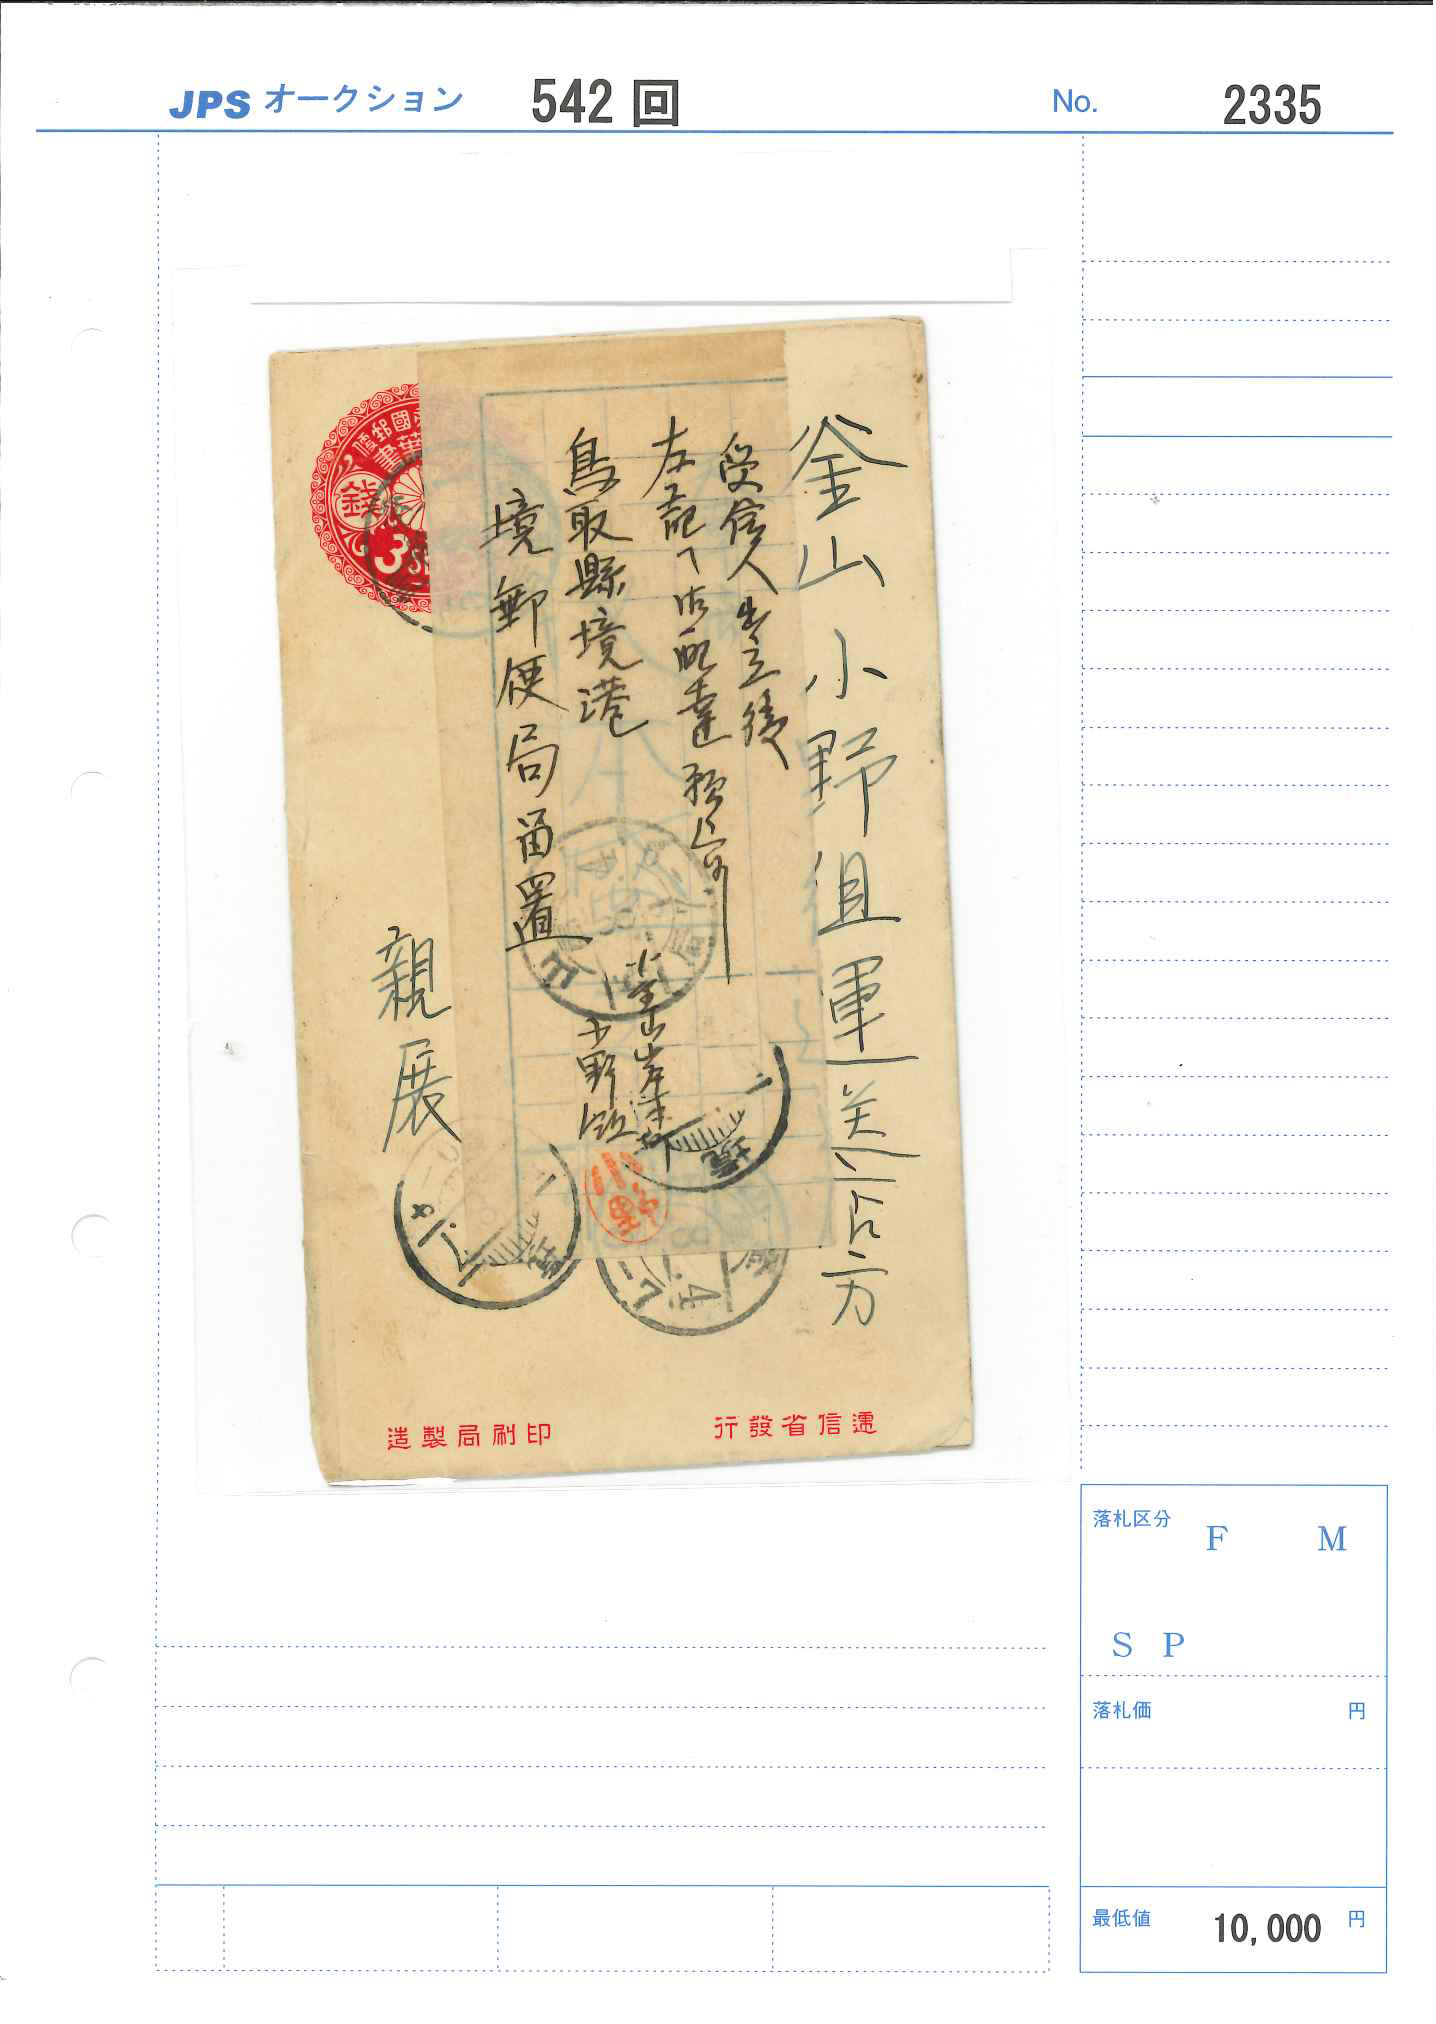 JPS オークション 542 回 No. 2335
釜山小野組運送店方
受信人出立後
左記へ御配達願度
鳥取縣境港
境郵便局留置
釜山岸本町
小野組
小野
親展
錢
3
遞信省發行
印刷局製造
落札区分 F M
S P
落札価 円
最低値 10,000 円